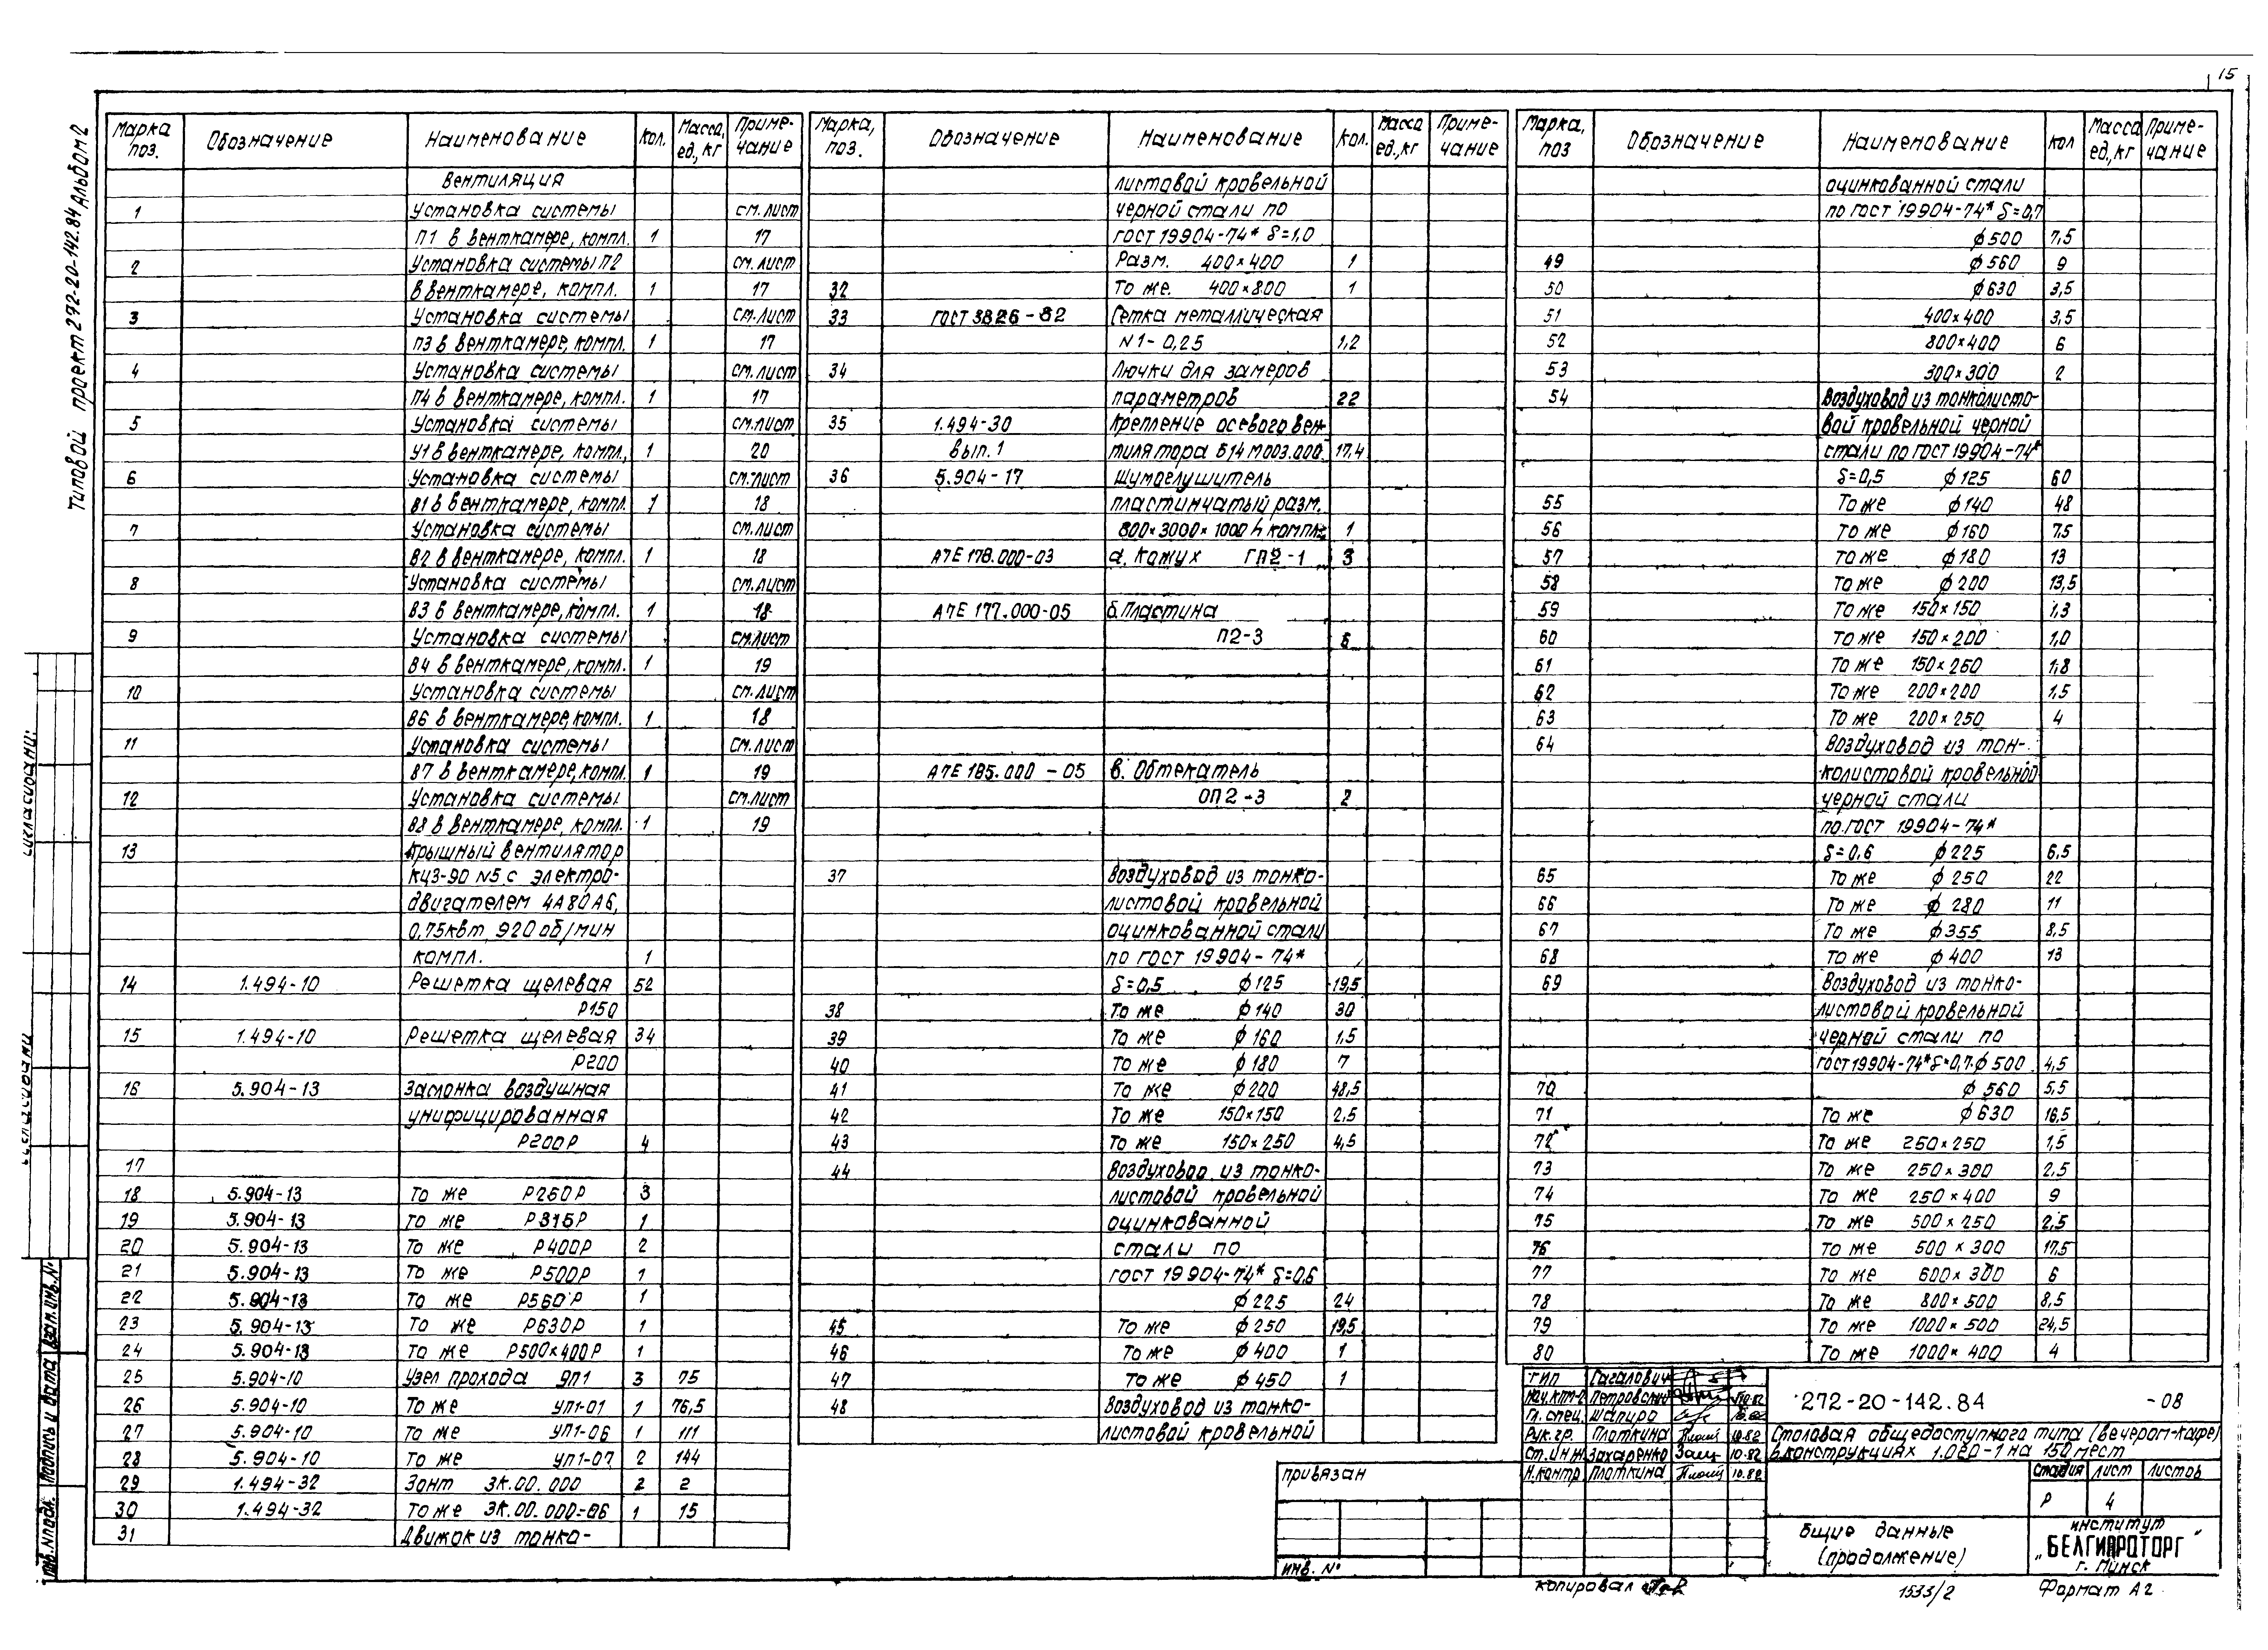 15
Типовой проект 272-20-142.84 Альбом 2
Марка поз. Обозначение Наименование Кол. Масса ед., кг Приме-чание
Вентиляция
1 Установка системы см. лист
П1 в венткамере, компл. 1 17
2 Установка системы П2 см. лист
в венткамере, компл. 1 17
3 Установка системы см. лист
П3 в венткамере, компл. 1 17
4 Установка системы см. лист
П4 в венткамере, компл. 1 17
5 Установка системы см. лист
У1 в венткамере, компл. 1 20
6 Установка системы см. лист
В1 в венткамере, компл. 1 18
7 Установка системы см. лист
В2 в венткамере, компл. 1 18
8 Установка системы см. лист
В3 в венткамере, компл. 1 18
9 Установка системы см. лист
В4 в венткамере, компл. 1 19
10 Установка системы см. лист
В6 в венткамере, компл. 1 18
11 Установка системы см. лист
В7 в венткамере, компл. 1 19
12 Установка системы см. лист
В8 в венткамере, компл. 1 19
13 Крышный вентилятор
КЦ3-90 N5 с электро-
двигателем 4А80А6,
0,75квт, 920 об/мин
компл. 1
14 1.494-10 Решетка щелевая 52
Р150
15 1.494-10 Решетка щелевая 34
Р200
16 5.904-13 Заслонка воздушная
унифицированная
Р200Р 4
17
18 5.904-13 То же Р250Р 3
19 5.904-13 То же Р315Р 1
20 5.904-13 То же Р400Р 2
21 5.904-13 То же Р500Р 1
22 5.904-13 То же Р560Р 1
23 5.904-13 То же Р630Р 1
24 5.904-13 То же Р500×400Р 1
25 5.904-10 Узел прохода УП1 3 75
26 5.904-10 То же УП1-01 1 76,5
27 5.904-10 То же УП1-06 1 111
28 5.904-10 То же УП1-07 2 144
29 1.494-32 Зонт ЗК.00.000 2 2
30 1.494-32 То же ЗК.00.000-06 1 15
31 Движок из тонко-
Марка, поз. Обозначение Наименование Кол. Масса ед., кг Приме-чание
листовой кровельной
черной стали по
ГОСТ 19904-74* δ=1,0
Разм. 400×400 1
32 То же. 400×800 1
33 ГОСТ 3826-82 Сетка металлическая
N1-0,25 1,2
34 Лючки для замеров
параметров 22
35 1.494-30 Крепление осевого вен-
вып. 1 тилятора Б14М003.000 17,4
36 5.904-17 Шумоглушитель
пластинчатый разм.
800×3000×1000 h компл. 1
А7Е 178.000-03 а. Кожух ГП2-1 3
А7Е 177.000-05 б. Пластина
П2-3
А7Е 185.000-05 в. Обтекатель
ОП2-3 2
37 Воздуховод из тонко-
листовой кровельной
оцинкованной стали
по ГОСТ 19904-74*
δ=0,5 ф125 19,5
38 То же ф140 30
39 То же ф160 1,5
40 То же ф180 7
41 То же ф200 48,5
42 То же 150×150 2,5
43 То же 150×250 4,5
44 Воздуховод из тонко-
листовой кровельной
оцинкованной
стали по
ГОСТ 19904-74* δ=0,6
ф225 24
45 То же ф250 19,5
46 То же ф400 1
47 То же ф450 1
48 Воздуховод из тонко-
листовой кровельной
Марка, поз Обозначение Наименование Кол Масса ед., кг Приме-чание
оцинкованной стали
по ГОСТ 19904-74* δ=0,7
ф500 7,5
49 ф560 9
50 ф630 3,5
51 400×400 3,5
52 800×400 6
53 300×300 2
54 Воздуховод из тонколисто-
вой кровельной черной
стали по ГОСТ 19904-74*
δ=0,5 ф125 60
55 То же ф140 48
56 То же ф160 7,5
57 То же ф180 13
58 То же ф200 13,5
59 То же 150×150 1,3
60 То же 150×200 1,0
61 То же 150×250 1,8
62 То же 200×200 1,5
63 То же 200×250 4
64 Воздуховод из тон-
колистовой кровельной
черной стали
по ГОСТ 19904-74*
δ=0,6 ф225 6,5
65 То же ф250 22
66 То же ф280 11
67 То же ф355 8,5
68 То же ф400 13
69 Воздуховод из тонко-
листовой кровельной
черной стали по
ГОСТ 19904-74* δ=0,7 ф500 4,5
70 ф560 5,5
71 То же ф630 16,5
72 То же 250×250 1,5
73 То же 250×300 2,5
74 То же 250×400 9
75 То же 500×250 2,5
76 То же 500×300 17,5
77 То же 600×300 6
78 То же 800×500 8,5
79 То же 1000×500 24,5
80 То же 1000×400 4
ГИП Гагалович
Нач.КТМ-2 Петровский 10.82
Гл. спец. Шапиро 10.82
Рук. гр. Плоткина 10.82
Ст. инж. Захаренко 10.82
Н. контр Плоткина 10.82
272-20-142.84 -08
Столовая общедоступного типа (вечером-кафе)
в конструкциях 1.020-1 на 150 мест
Стадия Лист Листов
Р 4
бщие данные
(продолжение)
институт
„БЕЛГИПРОТОРГ"
г. Минск
Привязан
Инв. N°
Согласовано:
Инв. N подл. Подпись и дата Взам. инв. N°
Копировал
1533/2
Формат А2